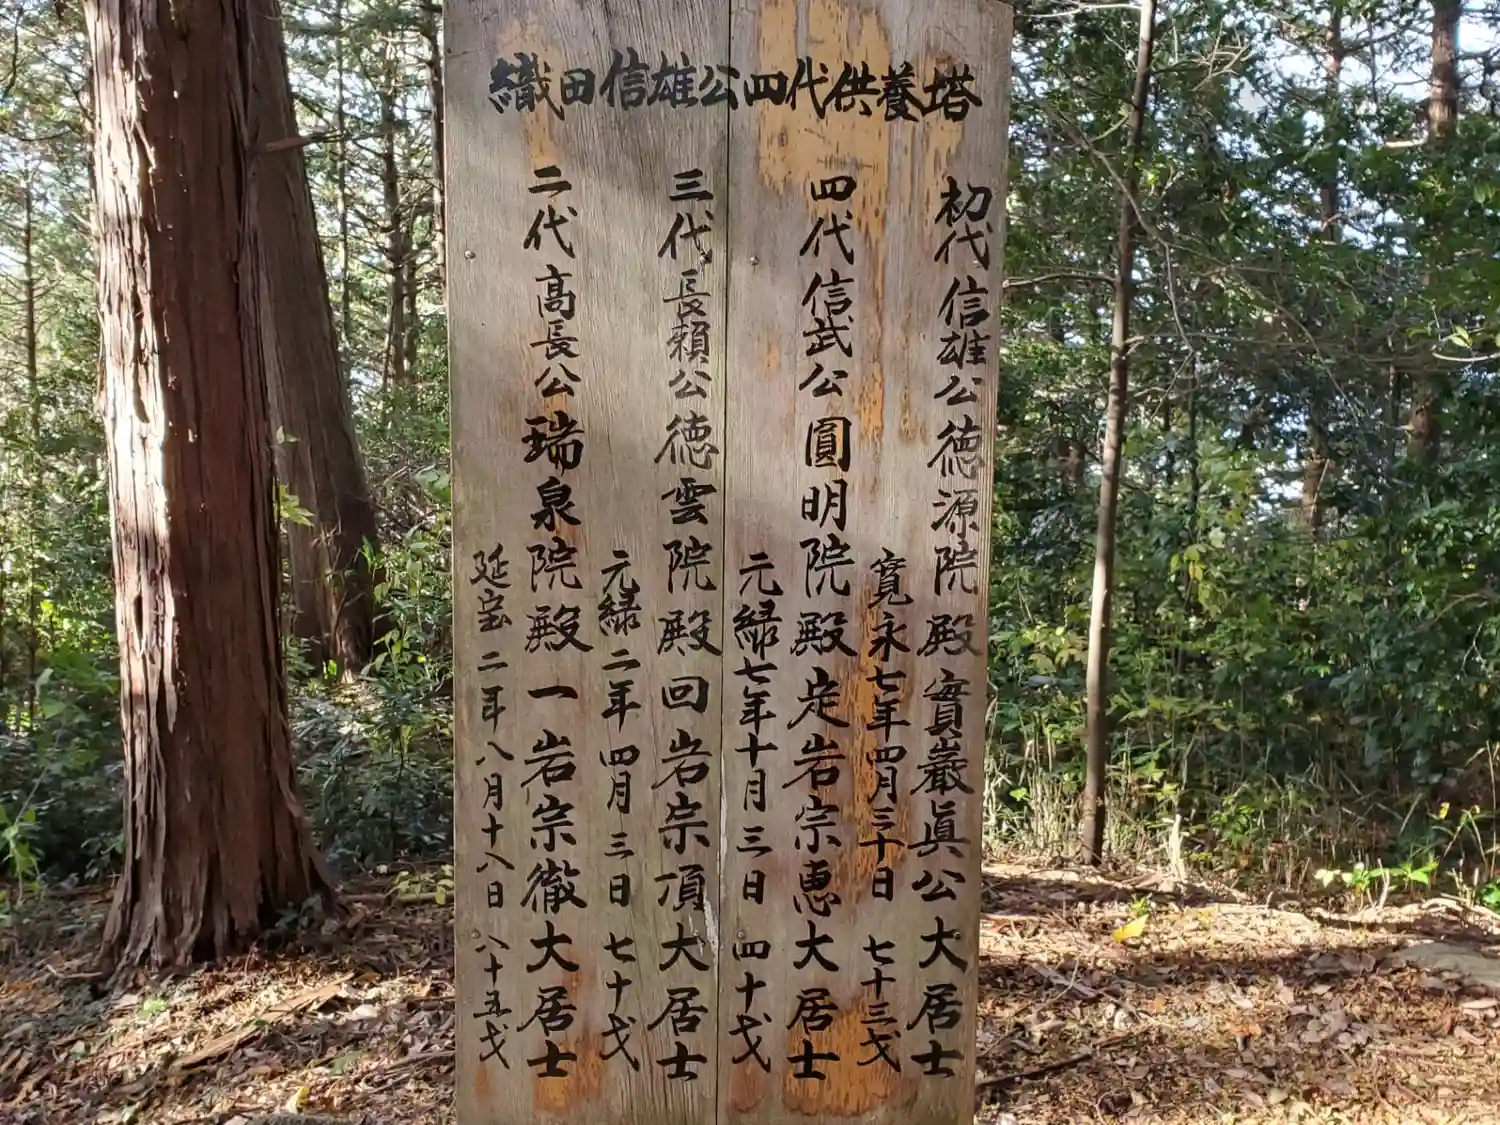 織田信雄公四代供養塔
初代信雄公徳源院殿實巖眞公大居士
寛永七年四月三十日 七十三才
四代信武公圓明院殿定岩宗恵大居士
元緑七年十月三日 四十才
三代長頼公徳雲院殿回岩宗頂大居士
元緑二年四月三日 七十才
二代高長公瑞泉院殿一岩宗徹大居士
延宝二年八月十八日 八十五才